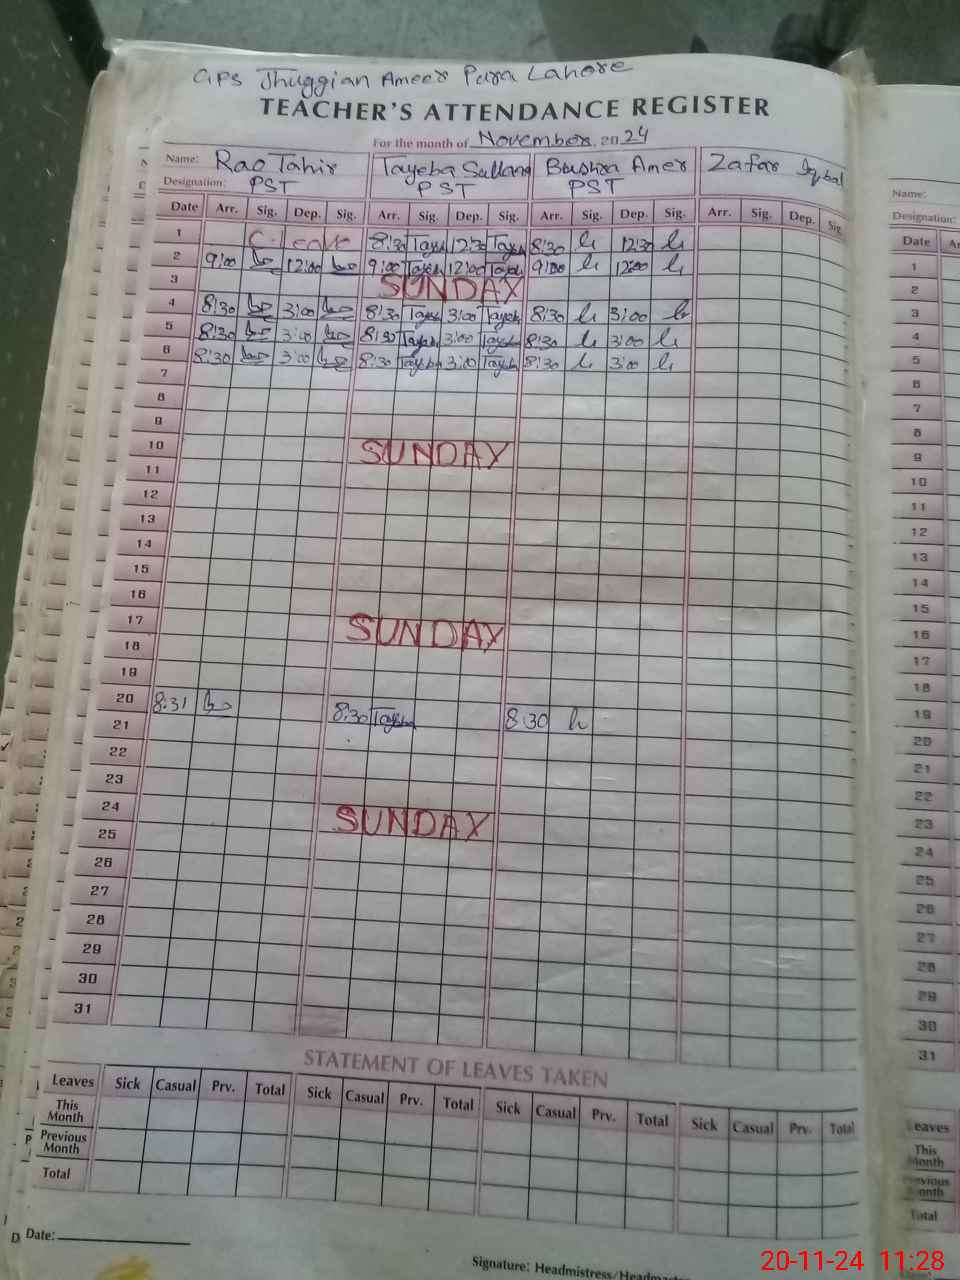 GPS Jhuggian Ameer Pura Lahore
TEACHER'S ATTENDANCE REGISTER
For the month of November, 2024
Name: Rao Tahir Tayeba Sultana Bushra Amer Zafar Iqbal
Designation: PST PST PST
Date Arr. Sig. Dep. Sig. Arr. Sig. Dep. Sig. Arr. Sig. Dep. Sig. Arr. Sig. Dep. Sig.
1 C. leave 8:30 Tayeba 12:30 Tayeba 8:30 12:30
2 9:00 12:00 9:00 Tayeba 12:00 Tayeba 9:00 12:00
3 SUNDAY
4 8:30 3:00 8:30 Tayeba 3:00 Tayeba 8:30 3:00
5 8:30 3:00 8:30 Tayeba 3:00 Tayeba 8:30 3:00
6 8:30 3:00 8:30 Tayeba 3:00 Tayeba 8:30 3:00
7
8
9
10 SUNDAY
11
12
13
14
15
16
17 SUNDAY
18
19
20 8:31 8:30 Tayeba 8:30
21
22
23
24 SUNDAY
25
26
27
28
29
30
31
STATEMENT OF LEAVES TAKEN
Leaves Sick Casual Prv. Total Sick Casual Prv. Total Sick Casual Prv. Total Sick Casual Prv. Total
This Month
Previous Month
Total
Date:
Signature: Headmistress/Headmaster
Name:
Designation:
Date
1
2
3
4
5
6
7
8
9
10
11
12
13
14
15
16
17
18
19
20
21
22
23
24
25
26
27
28
29
30
31
Leaves
This Month
Previous Month
Total
20-11-24 11:28